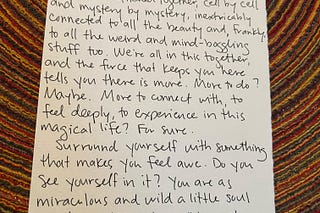 together, cell by cell
and mystery by mystery, inextricably
connected to all the beauty and, frankly,
to all the weird and mind-boggling
stuff too. We're all in this together,
and the force that keeps you here
tells you there is more. More to do?
Maybe. More to connect with, to
feel deeply, to experience in this
magical life? For sure.
Surround yourself with something
that makes you feel awe. Do you
see yourself in it? You are as
miraculous and wild a little soul